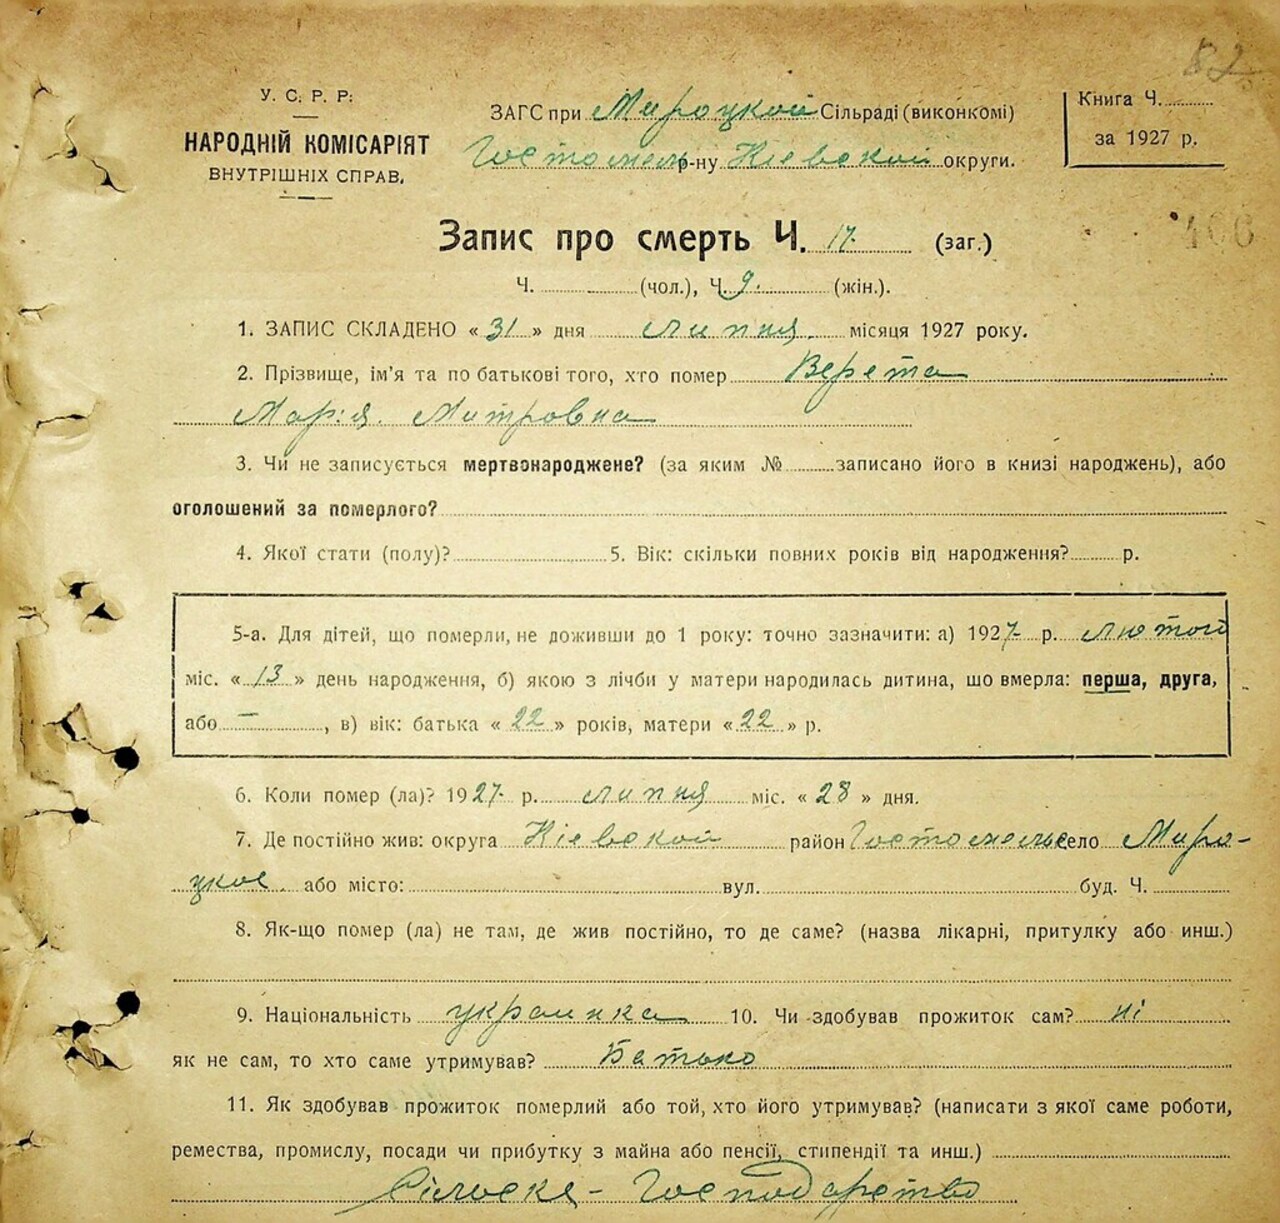 82
У. С. Р. Р.
НАРОДНІЙ КОМІСАРІЯТ
ВНУТРІШНІХ СПРАВ.
ЗАГС при Мироцкой Сільраді (виконкомі)
Гостомельр-ну Кіевской округи.
Книга Ч.
за 1927 р.
406
Запис про смерть Ч. 17. (заг.)
Ч. (чол.), Ч. 9. (жін.).
1. ЗАПИС СКЛАДЕНО « 31 » дня липня місяця 1927 року.
2. Прізвище, ім'я та по батькові того, хто помер Верета
Марія. Митровна
3. Чи не записується мертвонароджене? (за яким № записано його в книзі народжень), або
оголошений за померлого?
4. Якої стати (полу)? 5. Вік: скільки повних років від народження? р.
5-а. Для дітей, що померли, не доживши до 1 року: точно зазначити: а) 1927 р. лютой
міс. « 13 » день народження, б) якою з лічби у матери народилась дитина, що вмерла: перша, друга,
або — , в) вік: батька « 22 » років, матери « 22 » р.
6. Коли помер (ла)? 1927 р. липня міс. « 28 » дня.
7. Де постійно жив: округа Кіевской район Гостомельс село Миро-
цкое або місто: вул. буд. Ч.
8. Як-що помер (ла) не там, де жив постійно, то де саме? (назва лікарні, притулку або инш.)
9. Національність украинка 10. Чи здобував прожиток сам? ні
як не сам, то хто саме утримував? Батько
11. Як здобував прожиток померлий або той, хто його утримував? (написати з якої саме роботи,
ремества, промислу, посади чи прибутку з майна або пенсії, стипендії та инш.)
Сільске - Господарство